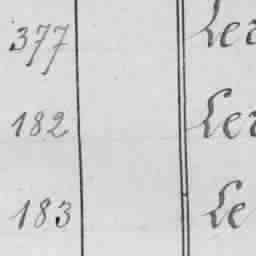 377 Ler
182 Ler
183 Le